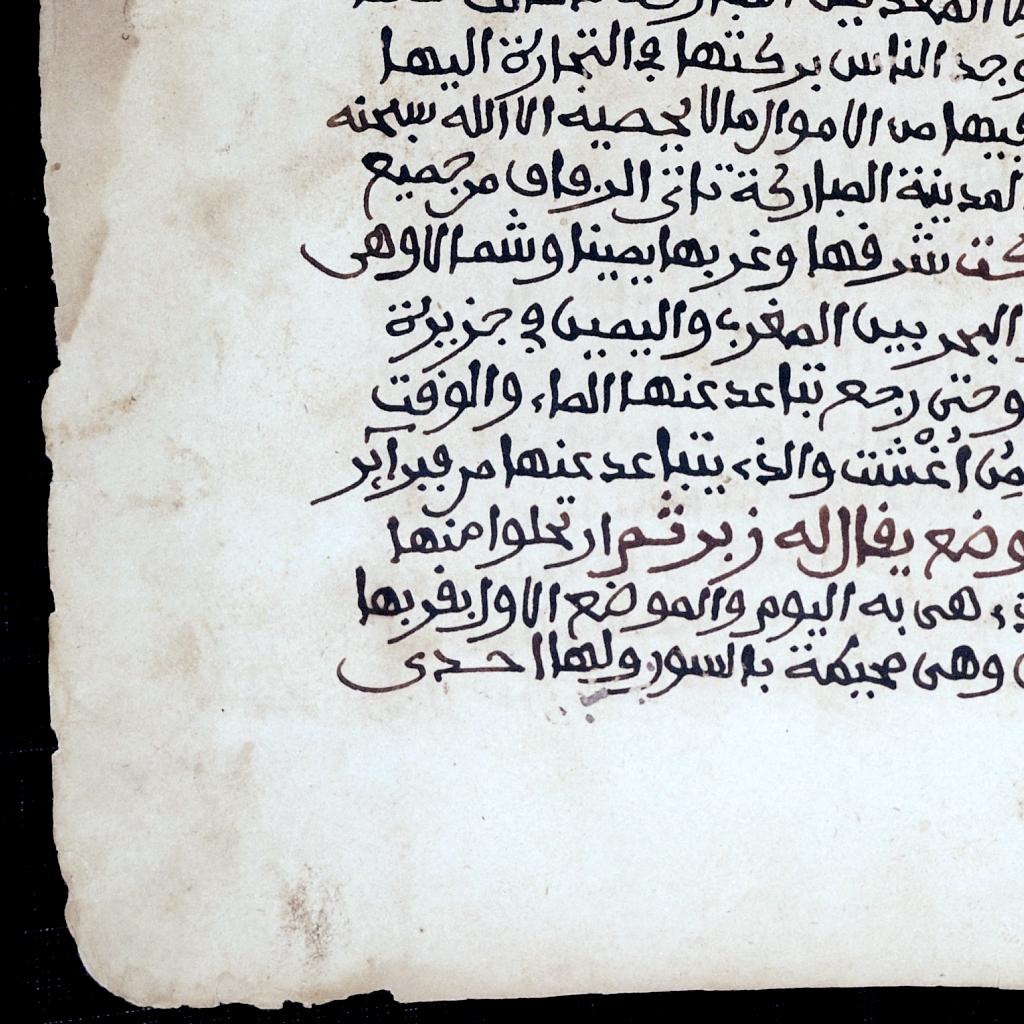 وجد الناس بركتها في التجارة اليها
فيها من الاموال ما لا يحصيه الا الله سبحنه
المدينة المباركة تاتى الرفاق من جميع
شرقها وغربها يمينا وشمالا وهى
البحر بين المغرب واليمين في جزيرة
وحتى رجع تباعد عنها الماء والوقت
من اُغُشْت والذى يتباعد عنها من فبراير
موضع يقال له زبر ثم ارتحلوا منها
هى به اليوم والموضع الاول بقربها
وهى محيطة بالسور ولها احدى